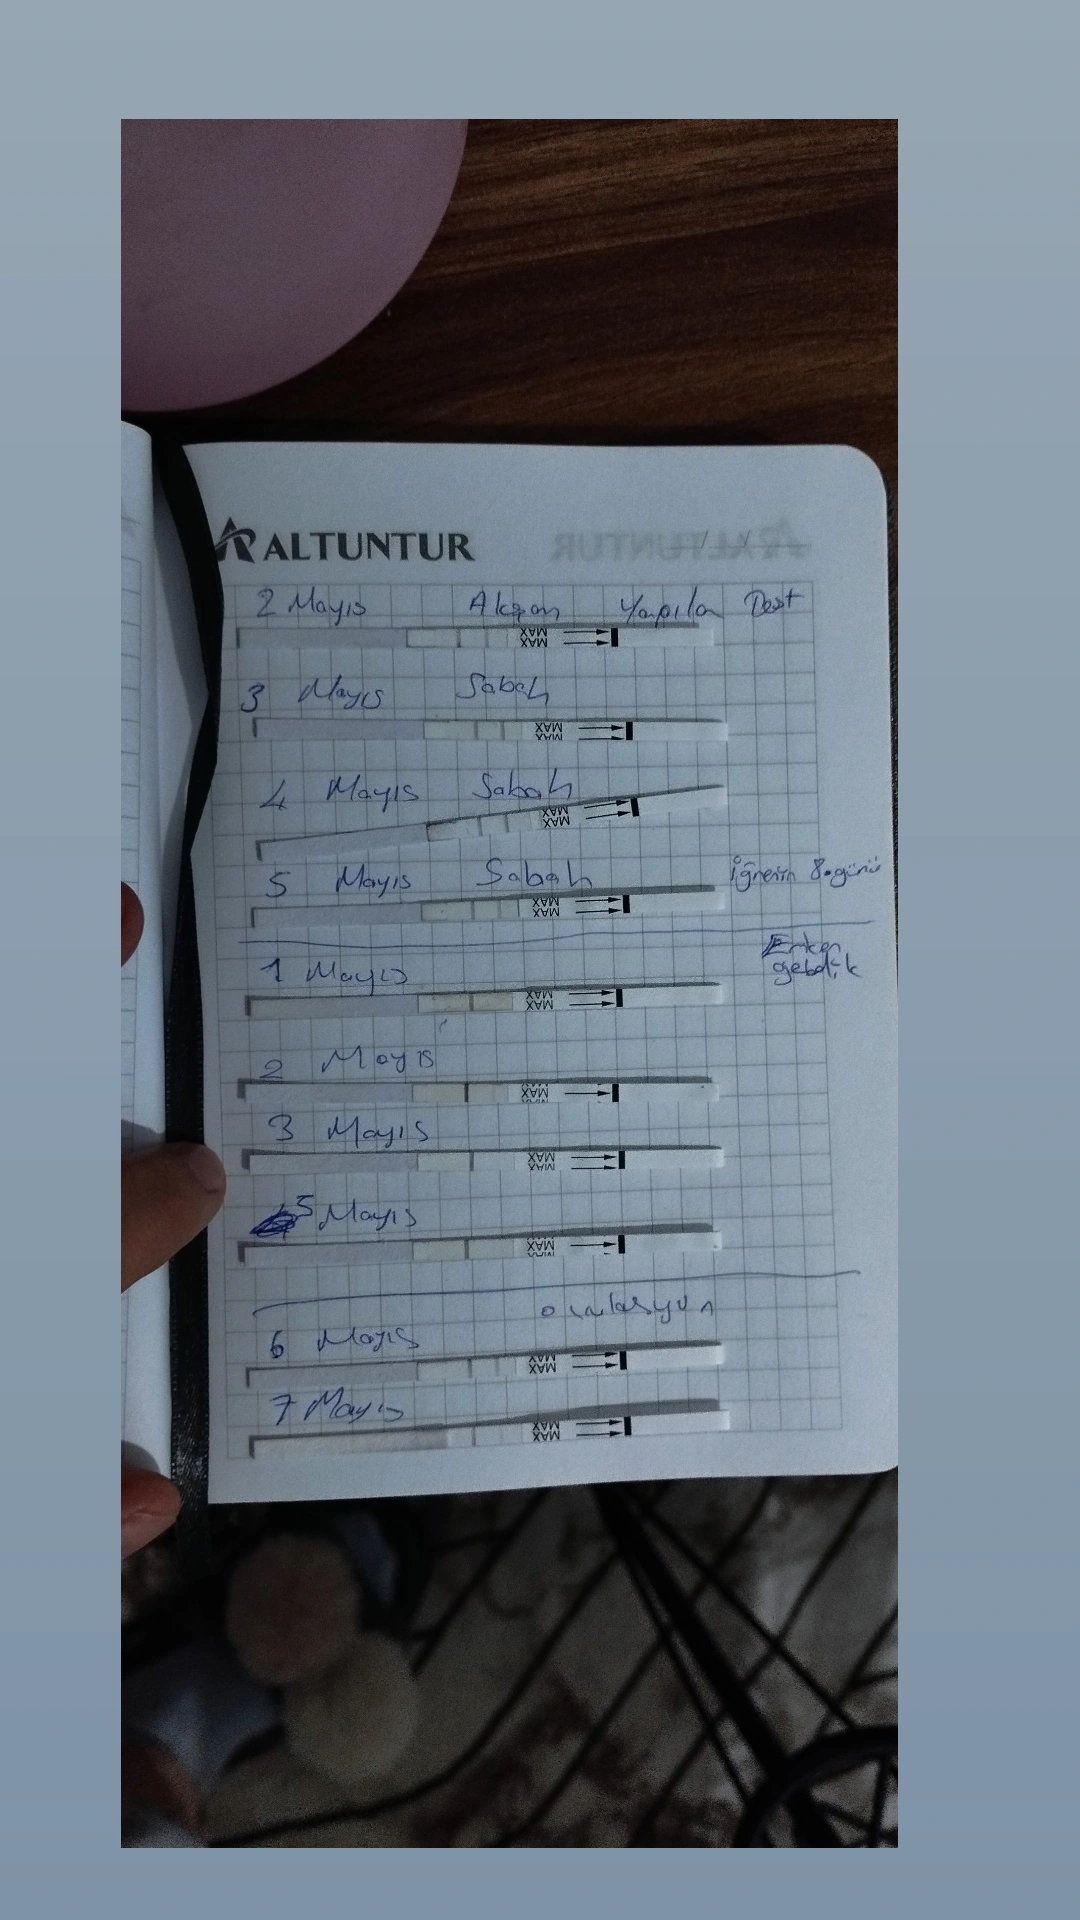 ALTUNTUR
2 Mayıs Akşam Yapılan Test
MAX MAX
3 Mayıs Sabah
MAX MAX
4 Mayıs Sabah
MAX MAX
5 Mayıs Sabah İğnenin 8.günü
MAX MAX
Erken
1 Mayıs gebelik
MAX MAX
2 Mayıs
MAX
3 Mayıs
MAX MAX
5 Mayıs
MAX
6 Mayıs ovulasyon
MAX MAX
7 Mayıs
MAX MAX